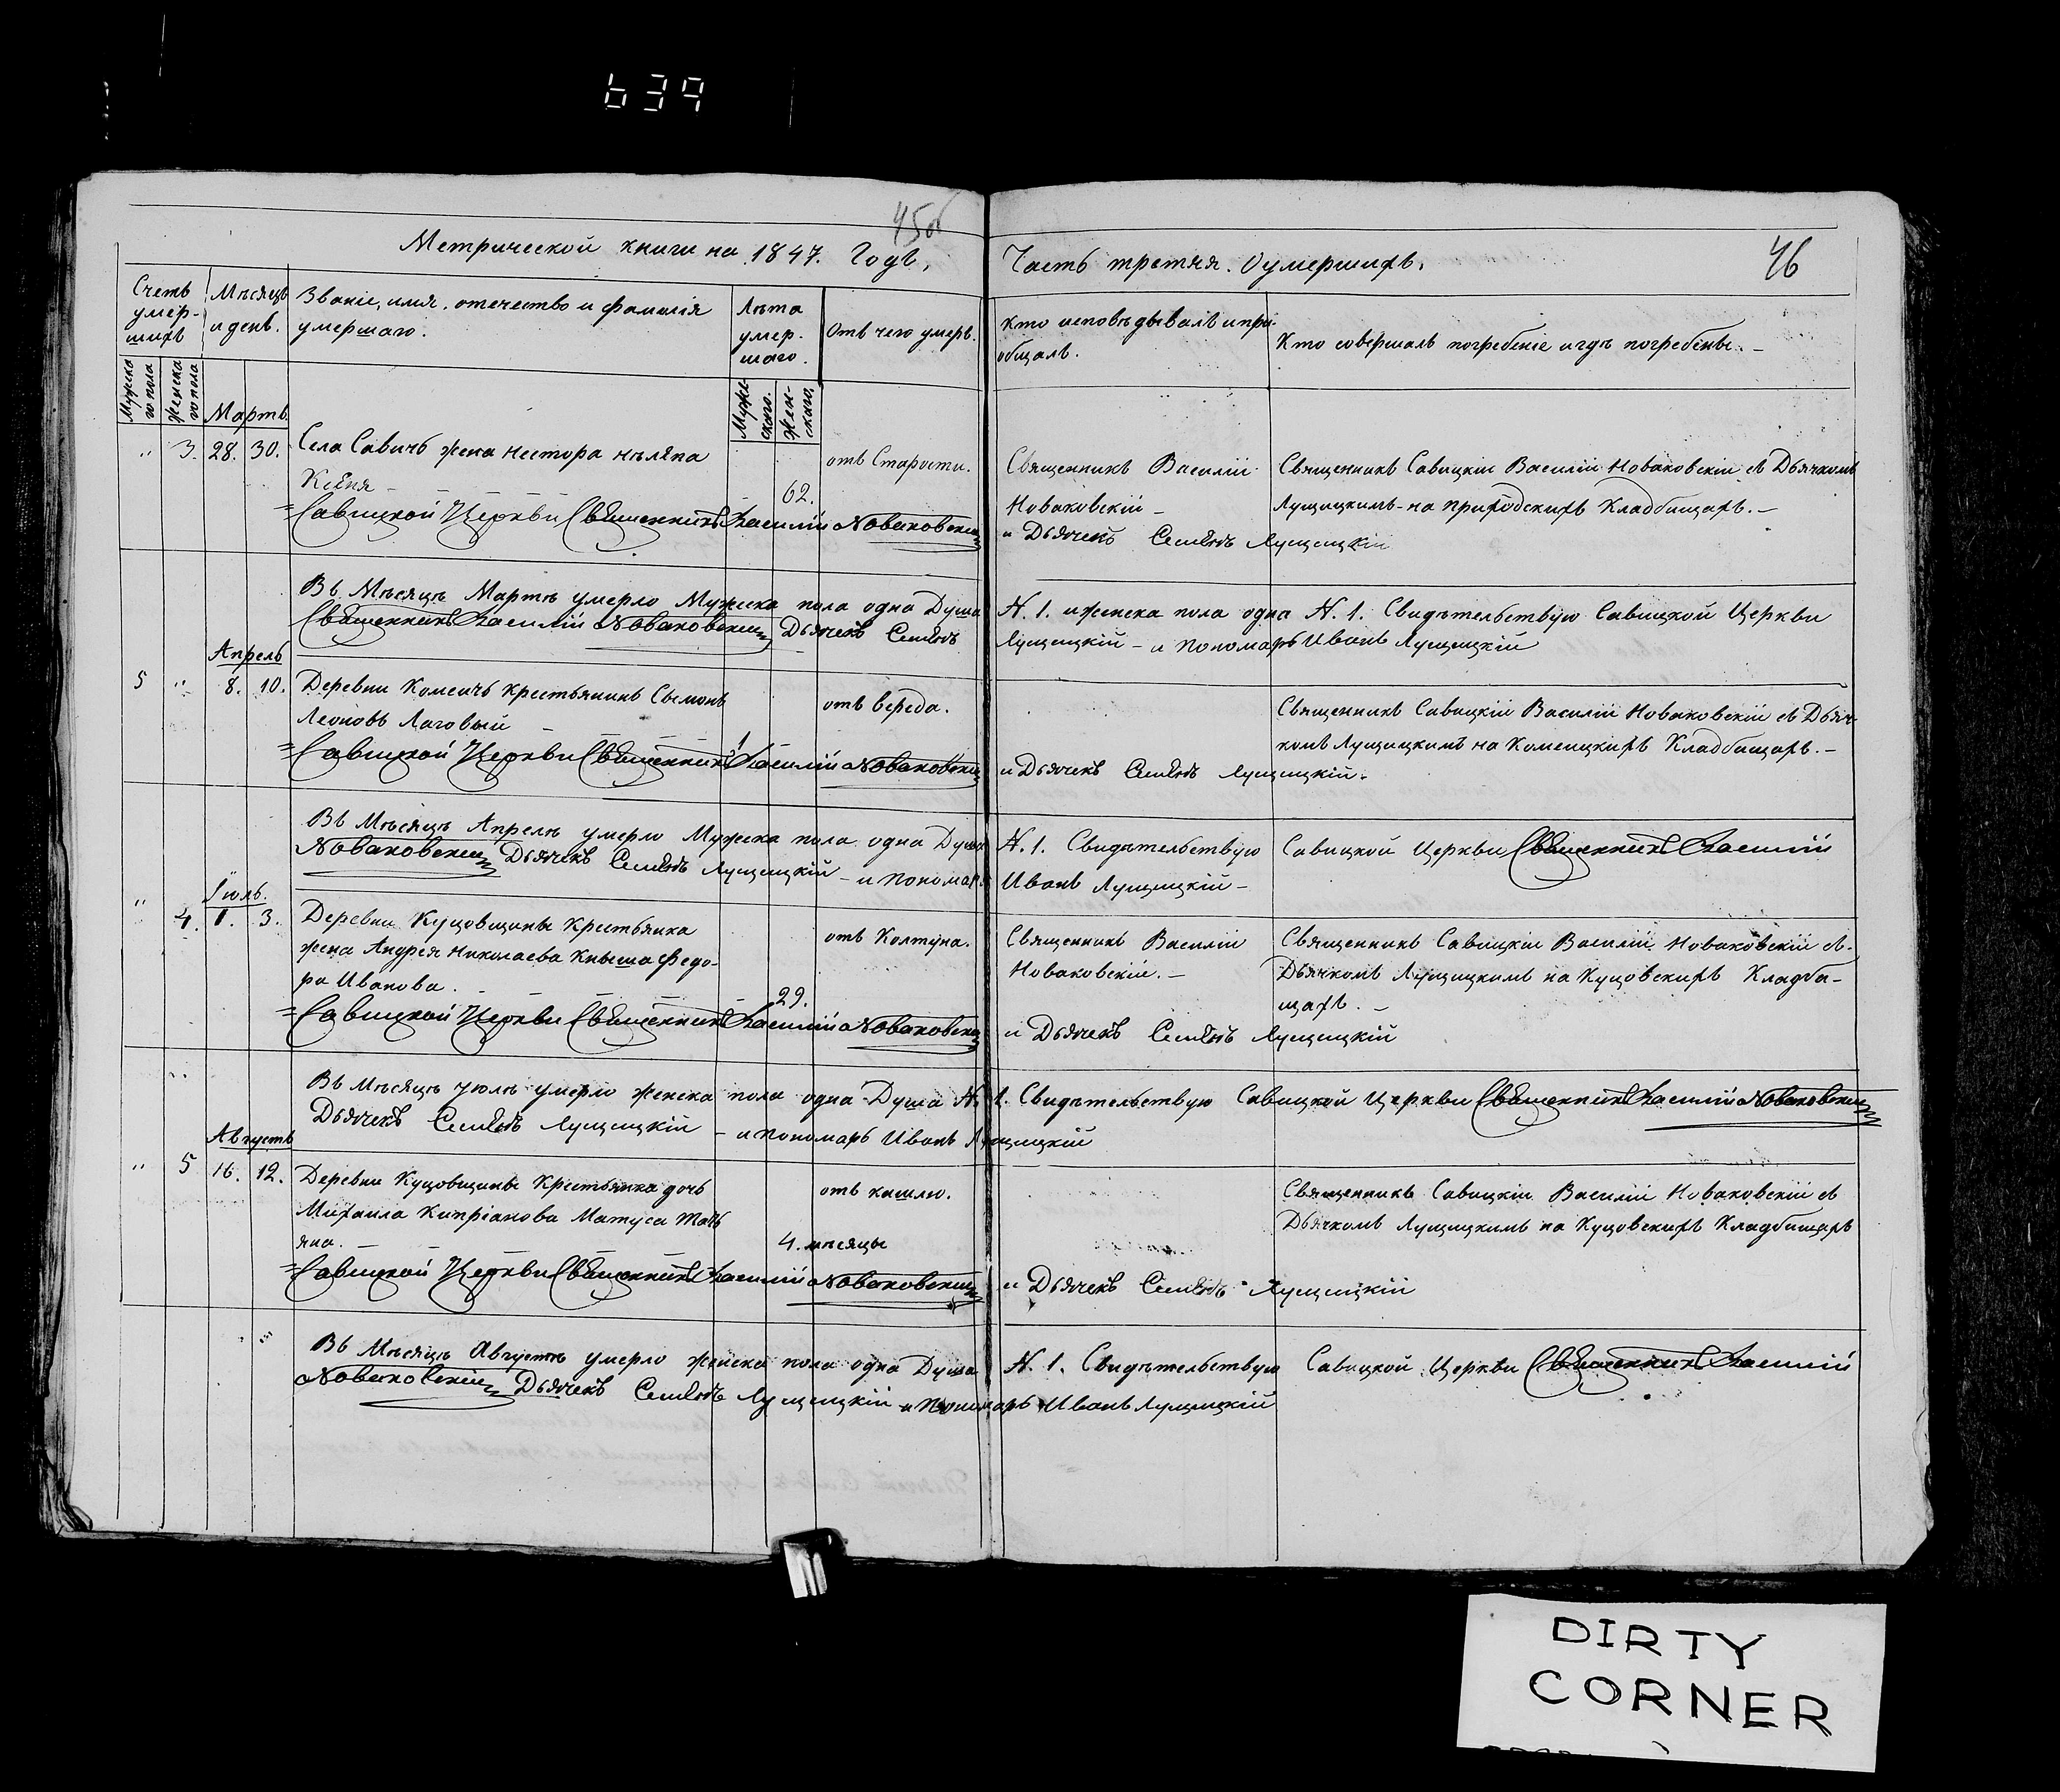 639
45об
Метрической книги на 1847. Годъ,
Часть третяя. О умершихъ.
46
Счетъ умер-шихъ
Мѣсяцъ и день.
Званіе, имя, отечество и фамилія умершаго.
Лѣта умер-шаго.
Отъ чего умеръ.
Кто исповѣдывалъ и прі-общалъ.
Кто совершалъ погребеніе и гдѣ погребены. –
Мужеска го пола
Женска го пола
Муже-скаго.
Жен-скаго,
Мартъ
" 3. 28. 30. Села Савичъ жена Нестора
отъ Старости.
Священникъ Василій
Священникъ Савицкій Василій Новаковскій съ Дьячкомъ
62.
Новаковскій –
Лущицкимъ на приходскихъ Кладбищахъ. –
=Савицкой Церкви Священникъ Василій Новаковскій
и Дьячекъ Семіонъ Лущицкій
Въ Мѣсяцѣ Мартѣ умерло Мужеска пола одна Душа
N. 1. и женска пола одна N. 1. Свидѣтельствую Савицкой Церкви
Священникъ Василій Новаковскій Дьячекъ Семіонъ
Лущицкій – и Пономарь Иванъ Лущицкій
Апрель
5 " 8. 10. Деревни Комсичъ крестьянинъ Сымонъ
отъ вереда.
Священникъ Савицкій Василій Новаковскій съ Дьяч-
Леоновъ Лаговый –
1
комъ Лущицкимъ на Комсицкихъ Кладбищахъ. –
=Савицкой Церкви Священникъ Василій Новаковскій
и Дьячекъ Семіонъ Лущицкій.
Въ Мѣсяцѣ Апрелѣ умерло Мужеска пола одна Душа
N. 1. Свидѣтельствую Савицкой Церкви Священникъ Василій
Новаковскій Дьячекъ Семіонъ Лущицкій – и Пономарь
Иванъ Лущицкій –
Іюль.
" 4. 1. 3. Деревни Куцовщины Крестьянка
отъ Колтуна.
Священникъ Василій
Священникъ Савицкій Василій Новаковскій съ
жена Андрея Николаева Кныша Федо-
Новаковскій. –
Дьячкомъ Лущицкимъ на Куцовскихъ Кладби-
ра Иванова.
29.
щахъ. –
=Савицкой Церкви Священникъ Василій Новаковскій
и Дьячекъ Семіонъ Лущицкій
Въ Мѣсяцѣ Уюлѣ умерло женска пола одна Душа N. 1. Свидѣтельствую Савицкой Церкви Священникъ Василій Новаковскій
Дьячекъ Семіонъ Лущицкій – и пономарь Иванъ Лущицкій
Августъ
" 5 12. Деревни Куцовщины Крестьянка дочь
отъ кашлю.
Священникъ Савицкій Василій Новаковскій съ
Михаила Кипріанова Матуса Тать
Дьячкомъ Лущицкимъ на Куцовскихъ Кладбищахъ
яна.
4. мѣсяцы
=Савицкой Церкви Священникъ Василій Новаковскій
и Дьячекъ Семіонъ Лущицкій
Въ Мѣсяцѣ Августѣ умерло женска пола одна Душа
N. 1. Свидѣтельствую Савицкой Церкви Священникъ Василій
Новаковскій Дьячекъ Семіонъ Лущицкій и Пономарь Иванъ Лущицкій
DIRTY
CORNER